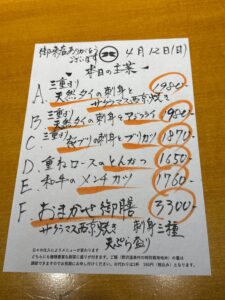 御来店ありがとう
ございます
4月12日(日)
本日の主菜
A. 三重さり 天然タイの刺身と 1980-
サクラマス西京焼き
B 三重 天然タイの刺身とアジフライ 1980-
C. 桜ブリの刺身とブリカツ 1870-
D. 重ねロースのとんかつ 1650-
E. 和牛のメンチカツ 1760-
F. おまかせ御膳 3300-
サクラマス西京焼き 刺身三種
天ぷら盛り